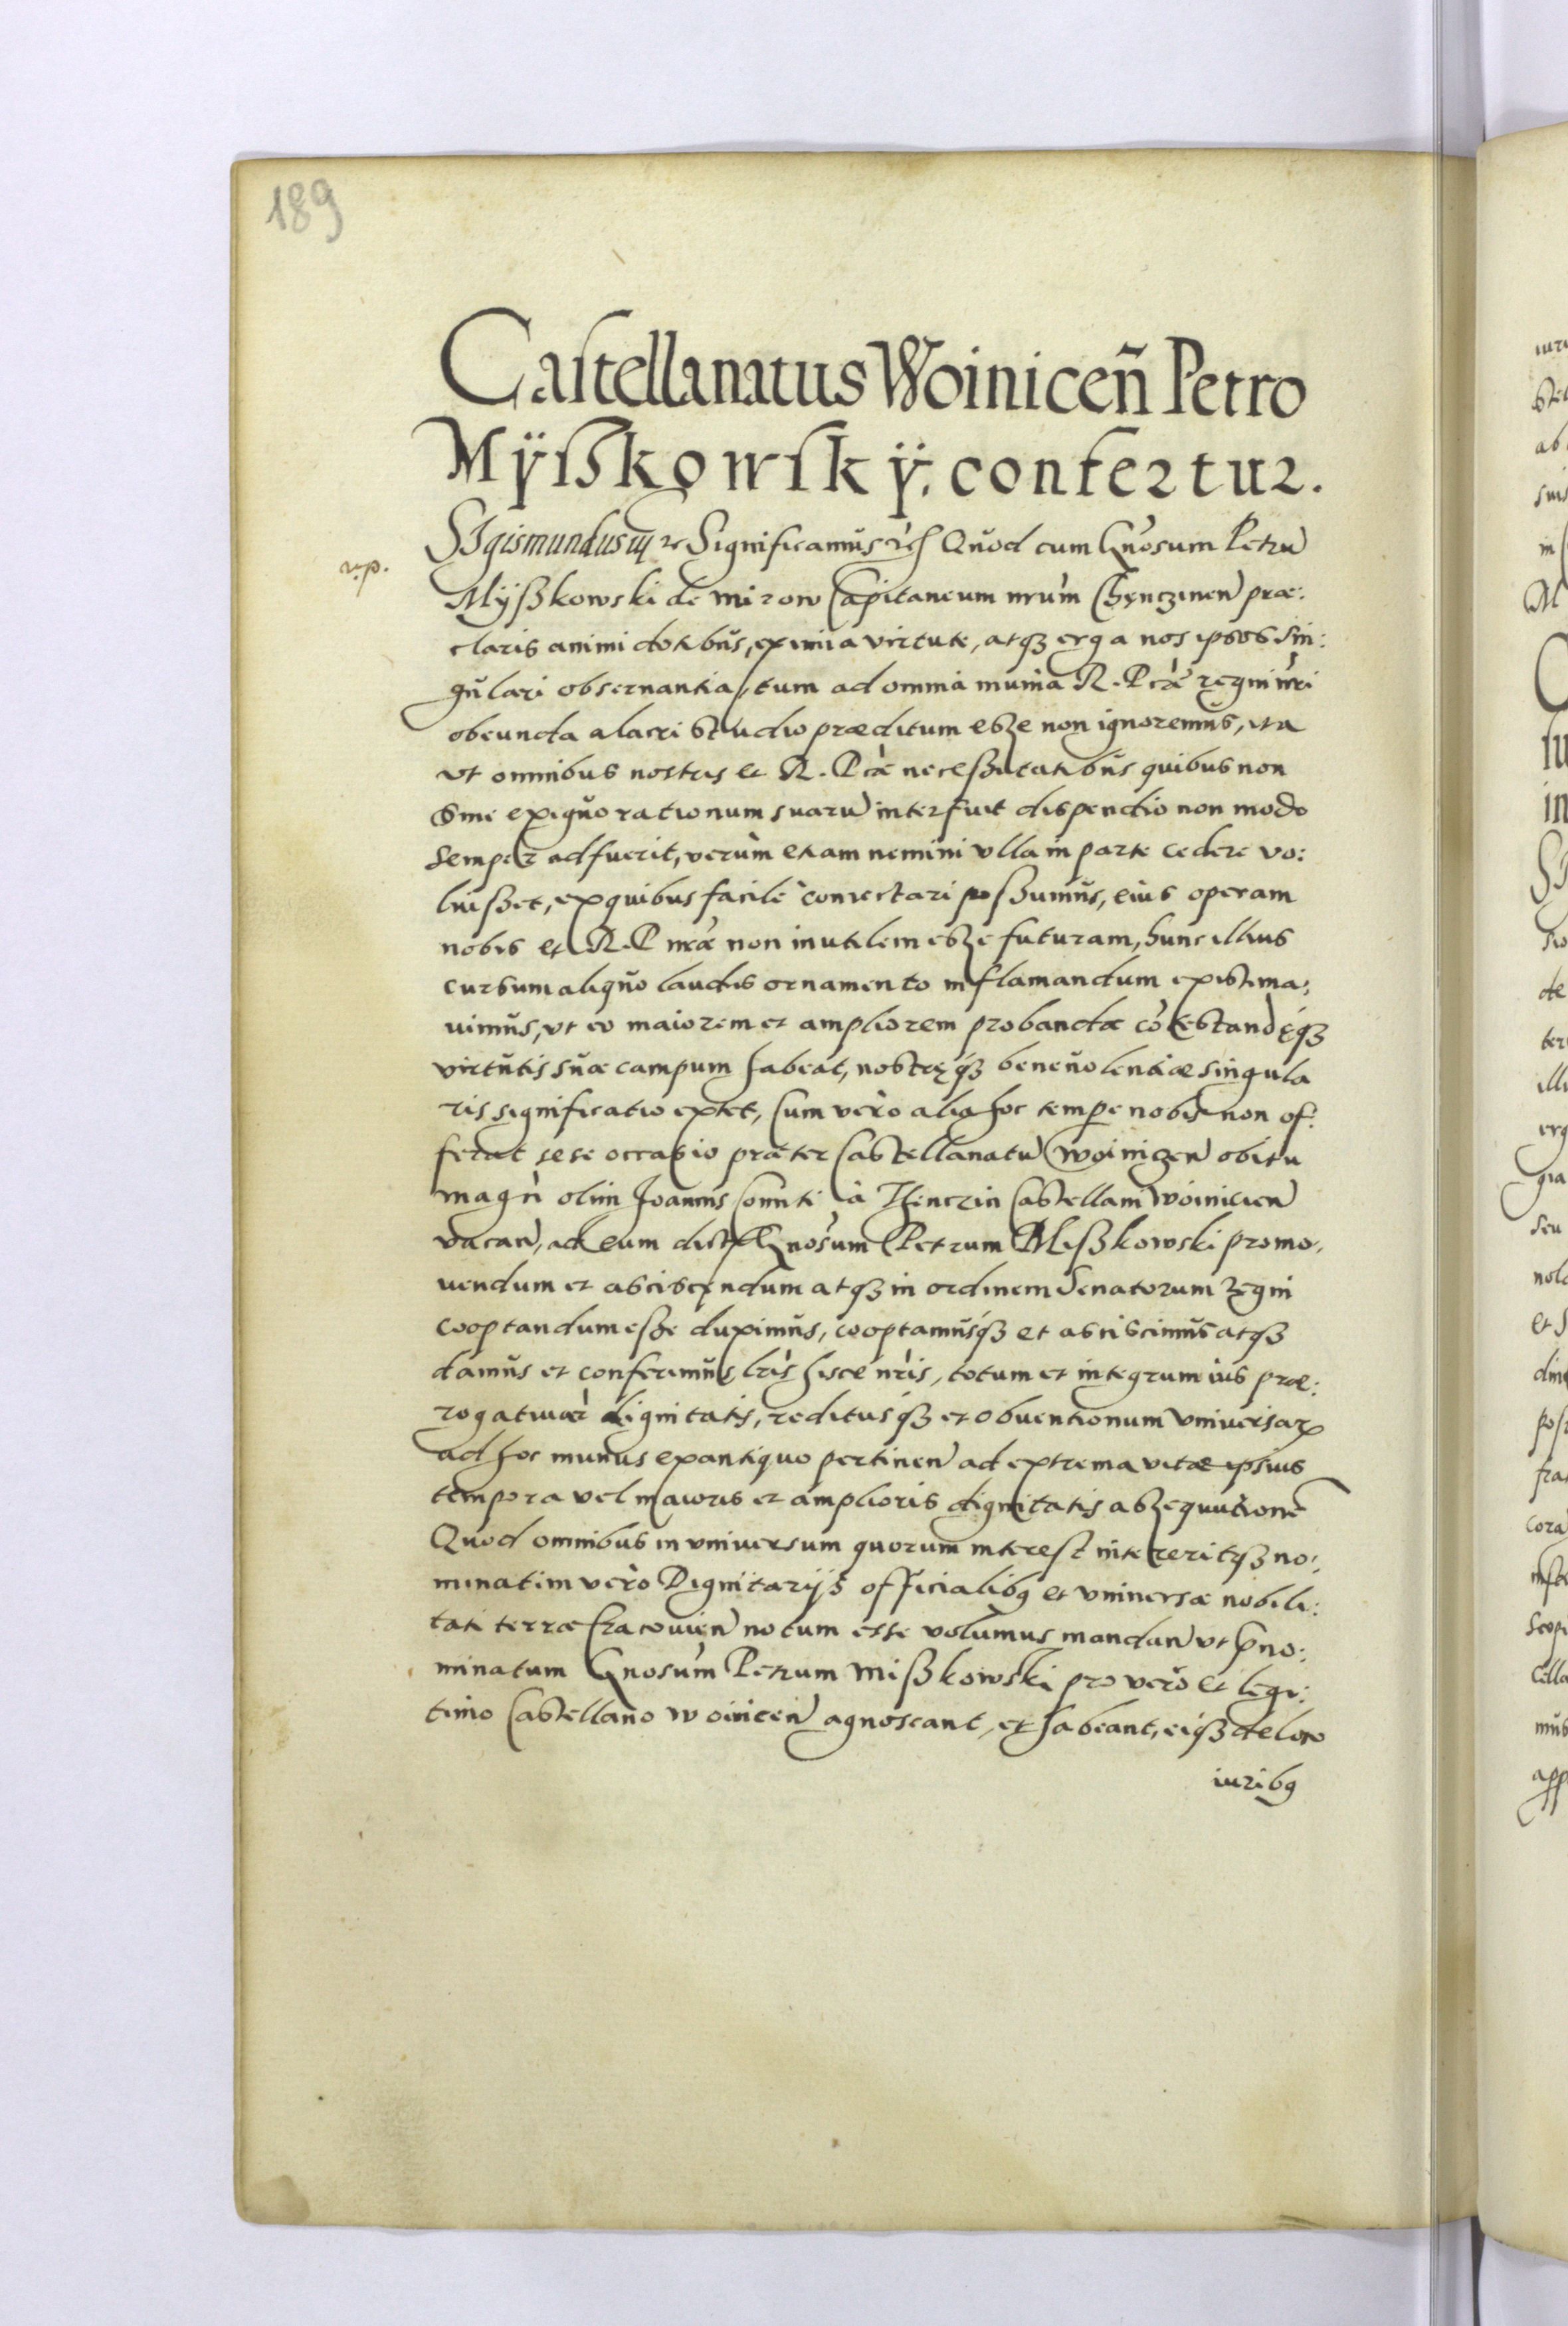 189
Castellanatus Woiniceñ Petro
Mÿßkowskÿ, confertur.
SIgismundus iij Significamus Quod cum Gn̄osum Petrū
r.p.
Myßkowski de Mirow Capitaneum nr̄um Chęnczinen̄ præ:
claris animi dotibus, eximia virtute, atqȝ erga nos ipsos sin:
gulari obseruantia, tum ad omnia munia R. P. regni nr̄i
obeunda alacri studio præditum esse non ignoremus, ita
vt omnibus nostris et R. P. necessitatibus quibus non
sine exiguo rationum suarū interfuit dispendio non modo
semper adfuerit, verùm etiam nemini vlla in parte cedere vo:
luißet, ex quibus facile coniectari poßumus, eius operam
nobis et R. P. nr̄æ non inutilem esse futuram, hunc illius
cursum aliquo laudis ornamento inflamandum existima:
uimus, vt eo maiorem et ampliorem probandæ cōtestandęqȝ
virtutis suæ campum habeat, nostręqȝ beneuolentiæ singula
ris significatio extet, Cum vero alia hoc tempe nobis non of:
ferat sese occasio præter Castellanatū Woinicen̄ obitu
magn̄i olim Joannis Comitis à Thenczin Castellani Woinicien̄
vacan̄, ad eum dict Gn̄osum Petrum Mißkowski promo,
uendum et asciscendum atqȝ in ordinem Senatorum regni
cooptandum eße duximus, cooptamusqȝ et asciscimus atqȝ
damus et conferimus lr̄is hisce nr̄is, totum et integrum ius præ:
rogatiuar̄ dignitatis, reditusqȝ et obuentionum vniuersarȝ
ad hoc munus ex antiquo pertinen̄ ad extrema vitæ ipsius
tempora vel maioris et amplioris dignitatis assequutionē
Quod omnibus in vniuersum quorum interest intereritqȝ no:
minatim vero Dignitarijs officialibꝯ et vniuersæ nobili:
tati terræ Cracouien̄ notum esse volumus mandan̄ vt p̄no:
minatum Gn̄osum Petrum Mißkowski pro vero et legi:
timo Castellano Woinicen̄ agnoscant, et habeant, eiqȝ de loco
iuribꝯ